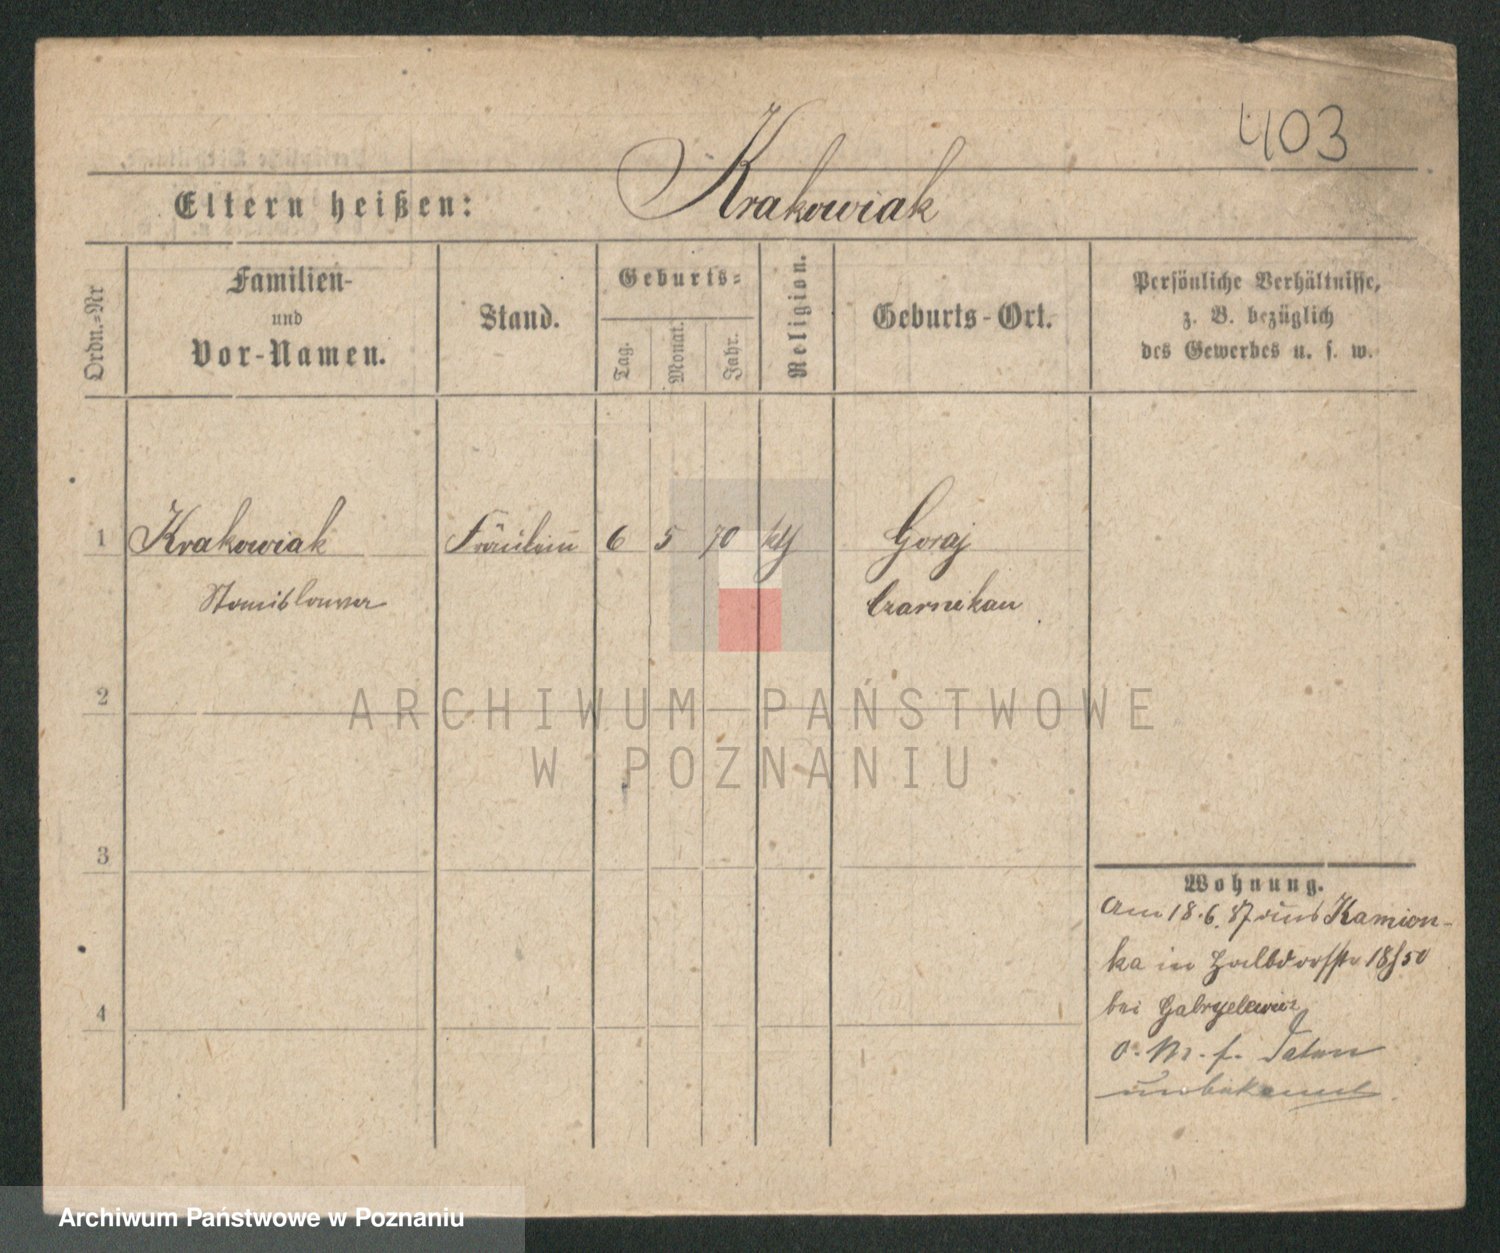 403
Eltern heißen: Krakowiak
Ordn.-Nr
Familien-
und
Vor-Namen.
Stand.
Geburts-
Tag.
Monat.
Jahr.
Religion.
Geburts-Ort.
Persönliche Verhältnisse,
z. B. bezüglich
des Gewerbes u. s. w.
1 Krakowiak Fräulein 6 5 70 kth Goraj
Stanislawa Czarnekau
2
ARCHIWUM PAŃSTWOWE
W POZNANIU
3
Wohnung.
Am 18.6.87 aus Kamion-
ka in Halbdorfstr 18/50
bei Gabryelewicz
4
o. M. f. Datum
unbekannt
Archiwum Państwowe w Poznaniu